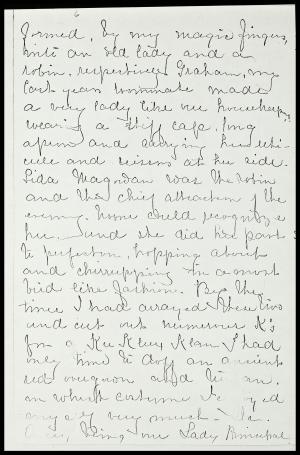 6
formed, by my magic fingers,
into an old lady and a
robin, respectively. Graham, my
last years roommate made
a very lady like
wearing a stiff cape, long
apron and carrying her
and scissors at her side.
Lida was the robin
and the chief attraction of the
evening. None could recognize
her, and she did her part
to perfection, hopping about
and chirrupping in a most
bird like fashion. By the
time I had arrayed these two
and cut out numerous K's
for a Ku Klux Klan I had
only time to doff an ancient
red and
in which costume I
very much.
being our Lady Principal